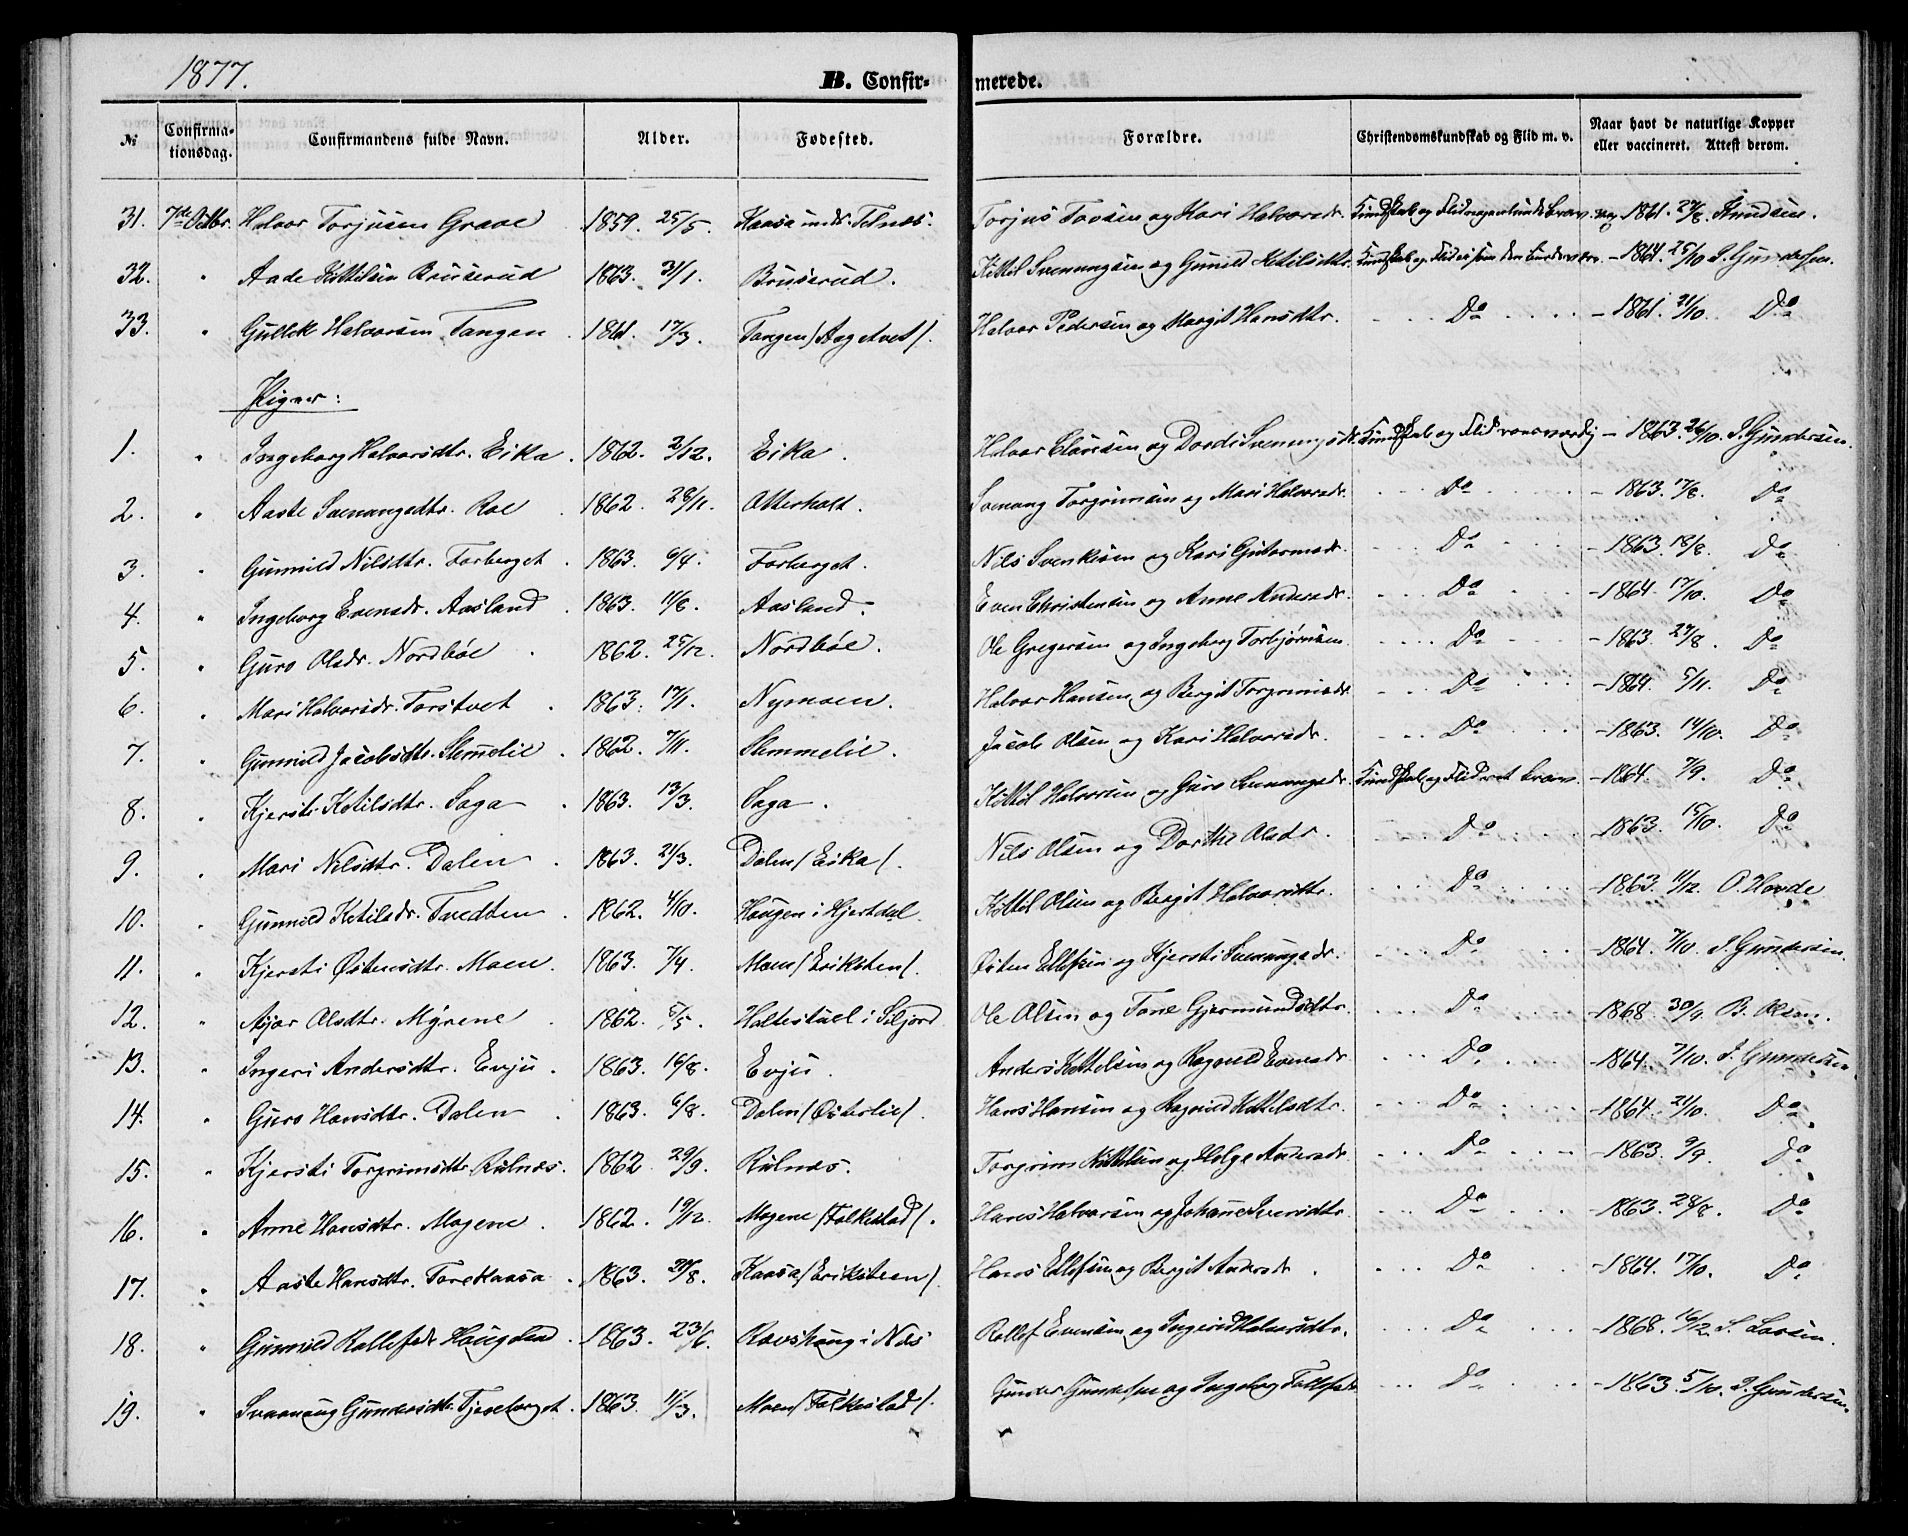 1877.
B. Confir- merede.
№ Confirma-tionsdag. Confirmandens fulde Navn. Alder. Fødested. Forældre. Christendomskundskab og Flid m. v. Naar havt de naturlige Kopper eller vaccineret. Attest derom.
31. 7de Octbr. Halvor Torjusen Grave 1859. 25/5. Kaasa Torjus Tovsen og Kari Halvorsdr. Kundskab og Flid 1861. 24/8. Knudsen.
32. " Aade Kittilsen Bruserud 1863. 31/1. Bruserud. Kittil Svenungsen og Gunild Ketilsdtr. Kundskab og Flid - 1864. 25/10 J. Gundersen.
33. " Gullek Halvorsen Tangen 1861. 17/3. Tangen /Aagetvet/. Halvor Pedersen og Margit Hansdtr. Do - 1861. 21/10. Do
Piger:
1. " Ingeborg Halvorsdtr. Eika. 1862. 2/12. Eika. Halvor Clausen og Dordi Svenungsdtr. Kundskab og Flid roesværdig - 1863. 26/10. J. Gundersen.
2. " Aaste Svenungsdtr. Roe 1862. 28/11. Otterholt. Svenung Torgrimsen og Mari Halvorsdr. Do - 1863. 17/8. Do
3. " Gunnild Nilsdtr. Forberget. 1863. 6/4. Forberget. Nils Svenkesen og Kari Gutormsdr. Do - 1863. 18/8. Do
4. " Ingeborg Evensdr. Aasland. 1863. 11/6. Aasland. Even Christensen og Anne Andersdr. Do - 1864. 17/10. Do
5. " Guro Olsdr. Nordbøe 1862. 25/12. Nordbøe. Ole Gregersen og Ingeborg Torbjørnsen Do - 1863. 24/8. Do
6. " Mari Halvorsdr. Forstvet. 1863. 17/1. Nymoen. Halvor Hansen og Bergit Torgrimsdr. Do - 1864. 5/11. Do
7. " Gunnild Jacobsdtr. Slemelie. 1862. 7/11. Slemmelie. Jacob Olsen og Kari Halvorsdr. Do - 1863. 14/10. Do
8. " Kjersti Ketilsdtr. Saga. 1863. 13/3. Saga. Kittil Halvorsen og Guro Svenungsdr. Kundskab og Flid meget brav. - 1864. 7/9. Do
9. " Mari Nilsdtr. Dalen. 1863. 21/3. Dalen /Eika/. Nils Olsen og Dorthe Olsdr. Do - 1863. 15/10. Do
10. " Gunnild Ketilsdr. Tvedten. 1862. 4/10. Haugen i Hjertdal. Kittil Olsen og Bergit Halvorsdtr. Do - 1863. 11/12. O. Hovde
11. " Kjersti Østensdtr. Moen. 1863. 7/4. Moen /Eriksten/. Østen Ellefsen og Kjersti Svenungsdr. Do - 1864. 7/10. J. Gundersen.
12. " Olsdtr. Myrene 1862. 5/5. i Siljord Ole Olsen og Tone Gjermundsdtr. Do - 1868. 30/9. B. Olsen.
13. " Ingeri Andersdtr. Evju. 1863. 16/8. Evju. Anders Kittelsen og Ragnild Evensdr. Do - 1864. 7/10. J. Gundersen.
14. " Guro Hansdtr. Dalen 1863. 6/8. Dalen /Østerlie/. Hans Hansen og Ragnild Kittilsdtr. Do - 1864. 21/10. Do
15. " Kjersti Torgrimsdtr. Rulnæs. 1862. 29/9. Rulnæs. Torgrim Kittilsen og Helge Andersdr. Do - 1863. 9/9. Do
16. " Anne Hansdtr. Mogene. 1862. 19/12. Mogene /Folkestad/. Hans Halvorsen og Johanne Iversdtr. Do - 1863. 28/8. Do
17. " Aaste Hansdtr. Torekaasa. 1863. 20/8. Kaasa /Eriksteen/. Hans Ellefsen og Bergit Andersdr. Do - 1864. 17/10. Do
18. " Gunnild Rollefsdr. Haugelid. 1863. 23/6. Ravshaug i Næs Rollef Evensen og Ingerid Halvorsdtr. Do - 1868. 16/12. S. Larsen.
19. " Svanaug Gundersdtr. Tjøreborget. 1863. 11/3. Moen /Folkestad/. Gunder Gundersen og Ingeborg Do - 1863. 5/10. J. Gundersen.